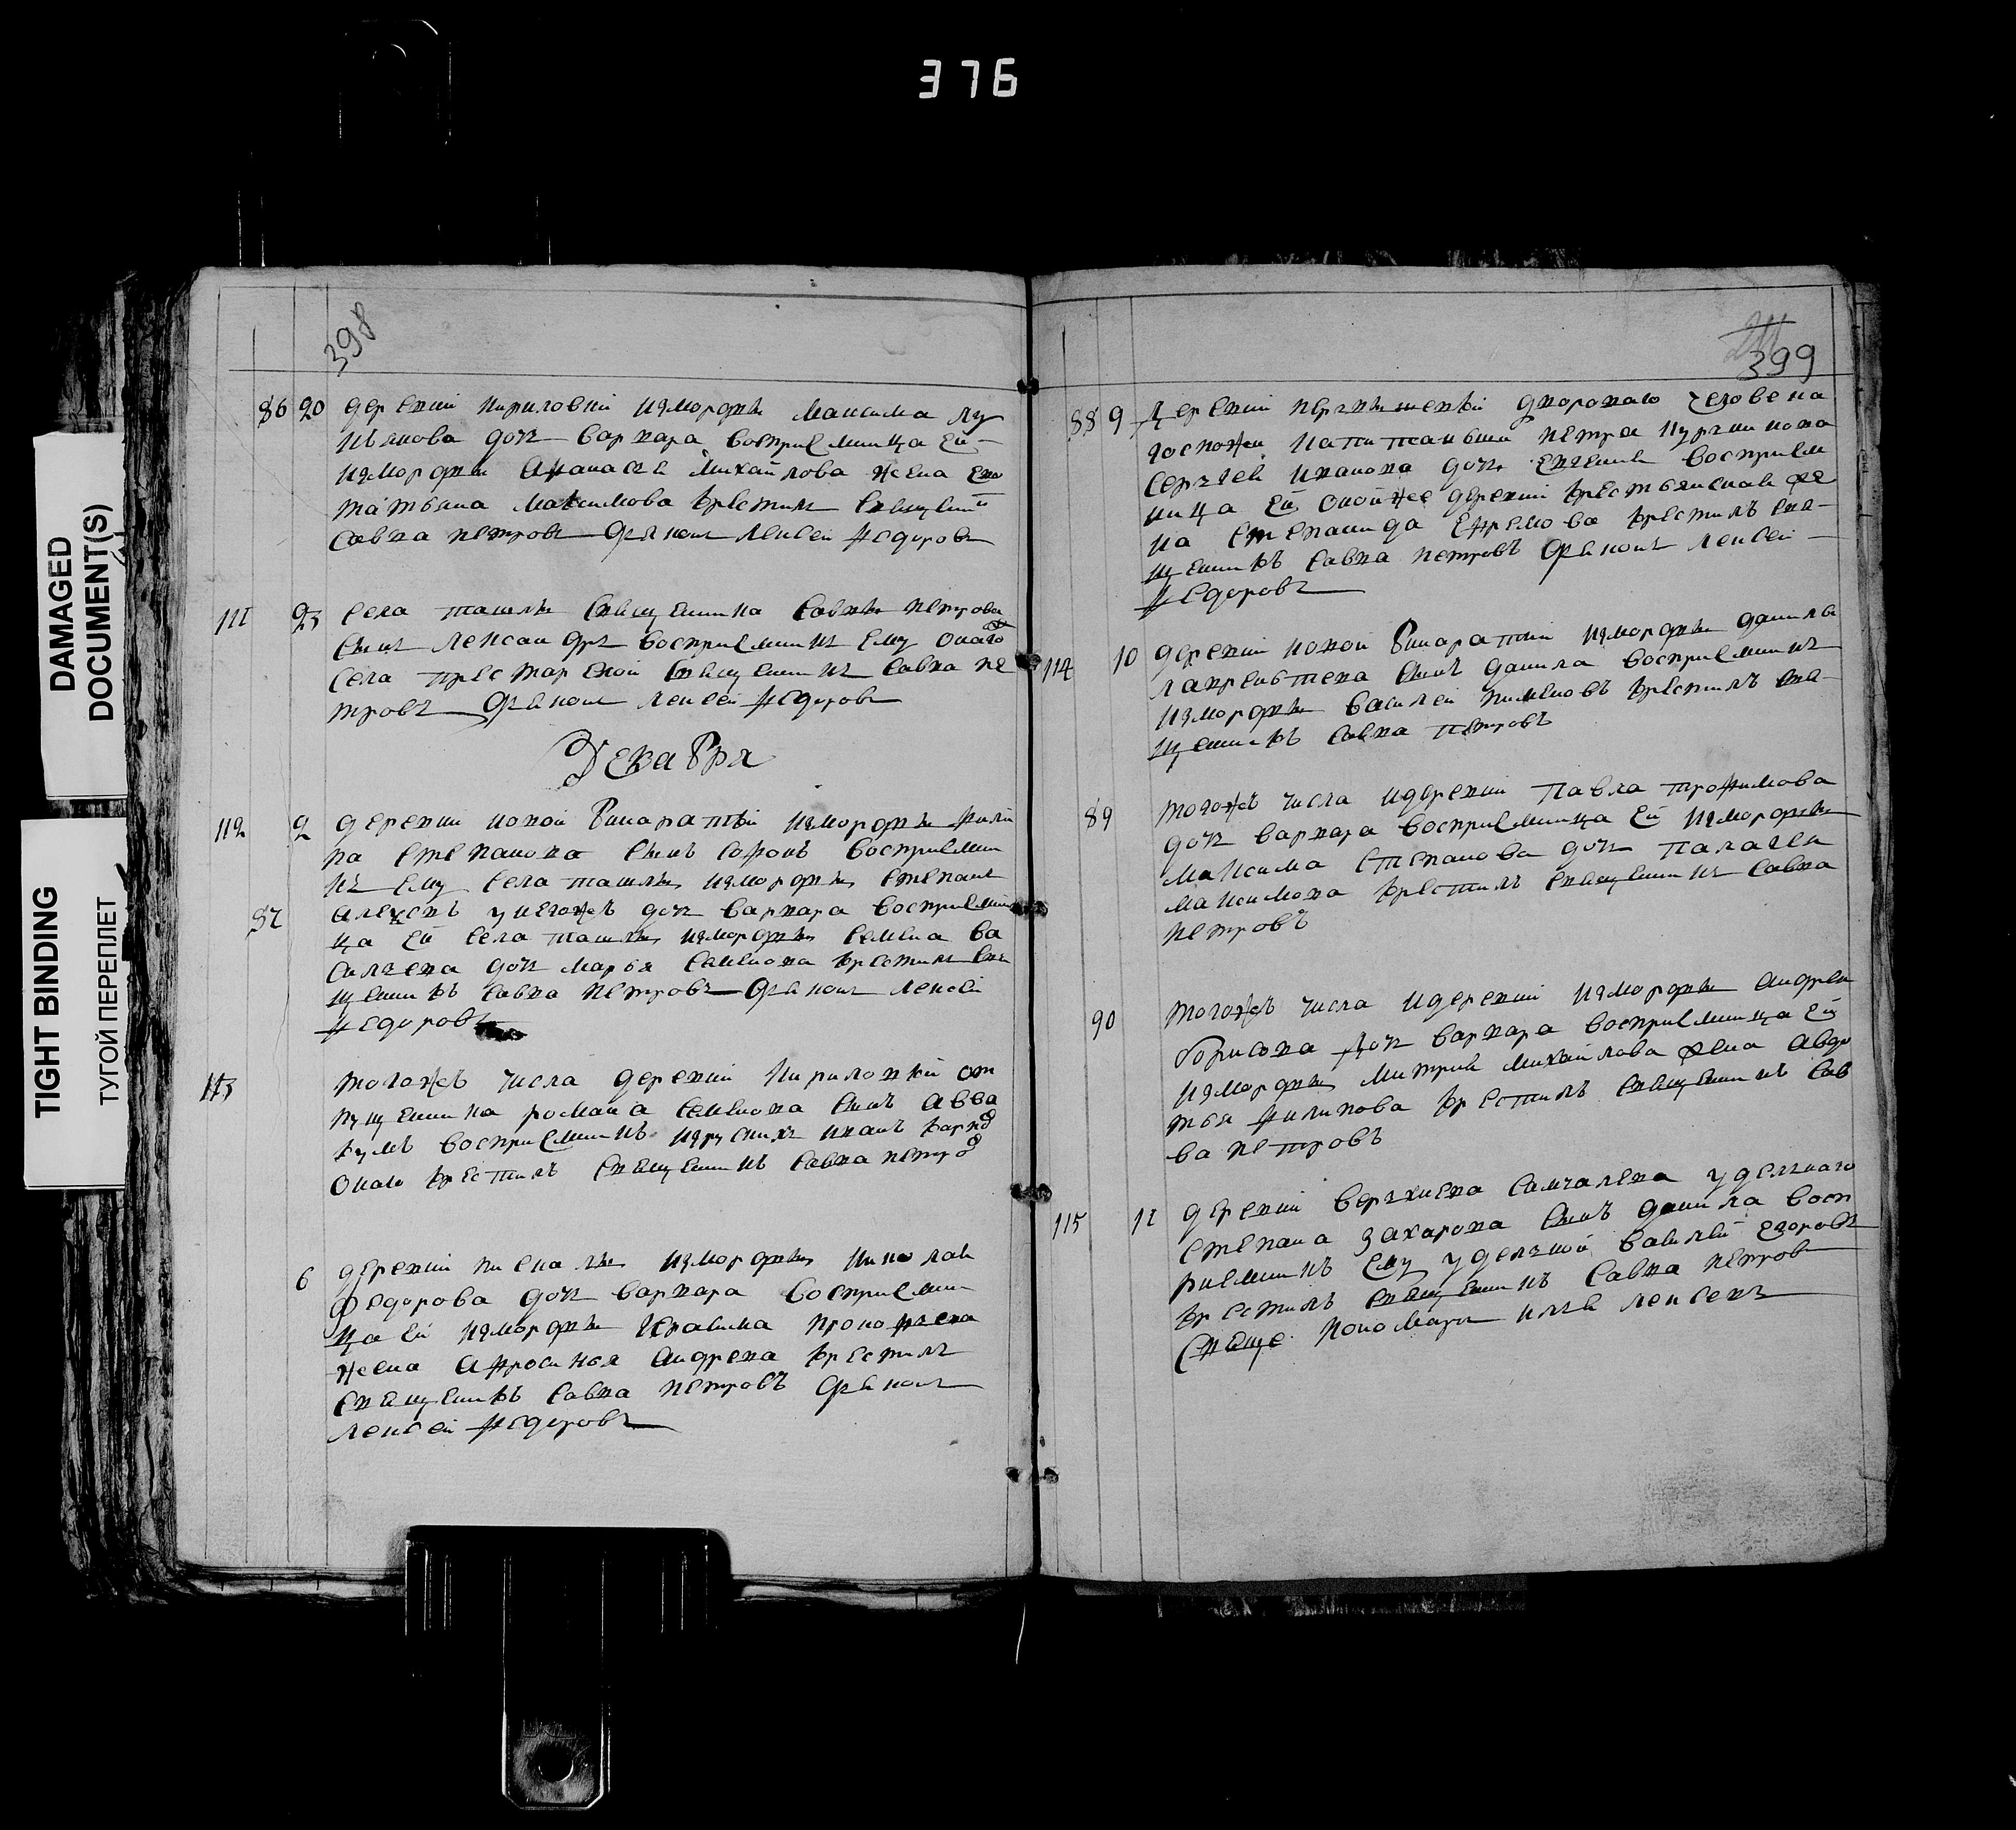 376
DAMAGED
DOCUMENT(S)
TIGHT BINDING
ТУГОЙ ПЕРЕПЛЕТ
398
86 20 деревни кириловки измордвы максима лу
кьянова дочь варвара восприемница ей
измордвы Афанасья михайлова жена ево
татьяна максимова крестилъ священн
савва петровъ дьяконъ лексей федоровъ
111 25 села ташлы священника саввы петрова
сынъ лександръ восприемникъ ему онаго
села престарелой священникъ савва пе
тровъ дьяконъ лексей федоровъ
Декабря
112 2 деревни новой бинаратки измордвы фили
па степанова сынъ софонъ восприемни
къ ему села ташлы измордвы степанъ
87 алексевъ унегожъ дочь варвара восприемни
ца ей села ташлы измордвы семена ва
сильева дочь марья семенова крестилъ свя
щенникъ савва петровъ дьяконъ лексей
федоровъ
113 тогожъ числа деревни кириловки от
пущенника романа семенова сынъ авва
кумъ восприемникъ изруских иванъ карпо
онаго крестилъ священникъ савва петро
6 деревни пискалы измордвы николая
федорова дочь варвара восприемни
ца ей измордвы герасима прокофьева
жена афросинья андрева крестилъ
священникъ савва петровъ дьяконъ
лексей федоровъ
399
88 9 деревни дворового человека
госпожи петра
сергей иванова дочь евгения восприем
ница ей оной же деревни крестьянская же
на степанида ефремова крестилъ свя
щенникъ савва петровъ дьяконъ лексей
федоровъ
114 10 деревни новой бинаратки измордвы данилы
лаврентева сынъ данила восприемникъ
измордвы василей пименовъ крестилъ свя
щенникъ савва петровъ
89 тогожъ числа идеревни павла трофимова
дочь варвара восприемница ей измордвы
максима степанова дочь палагея
максимова крестилъ священникъ савва
петровъ
90 тогожъ числа идеревни измордвы андрея
борисова дочь варвара восприемница ей
измордвы митрия михайлова жена авдо
тья филипова крестилъ священникъ сав
ва петровъ
115 11 деревни верхнева санчалева уделнаго
степана захарова сынъ данила восп
риемникъ ему уделной василей егоровъ
крестилъ священникъ савва петровъ
пономарь илья лексевъ